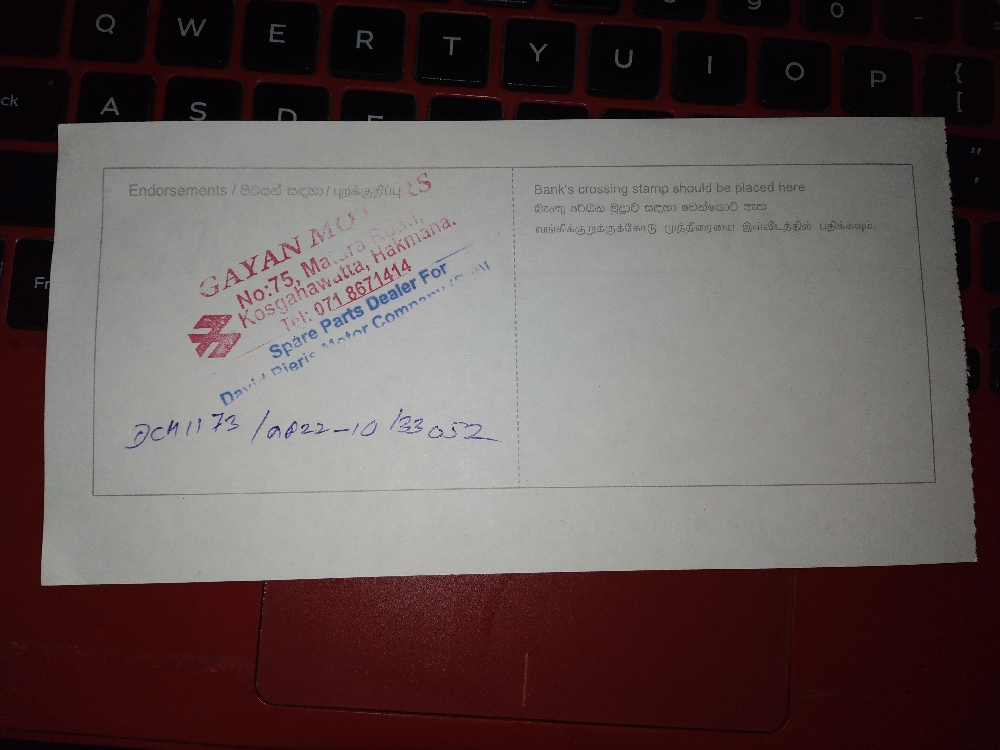 Endorsements / පිටසන් සඳහා / புறக்குறிப்பு
GAYAN MOTORS
No:75, Matara Road,
Kosgahawatta, Hakmana.
Tel: 071 8671414
Spare Parts Dealer For
David Pieris Motor Company
DCH1173 /2022-10/33052
Bank's crossing stamp should be placed here
බැංකු රේඛන මුද්‍රාව සඳහා වෙන්කොට ඇත
வங்கிக்குறுக்குக்கோடு முத்திரையை இவ்விடத்தில் பதிக்கவும்.
Q W E R T Y U I O P { [
A S D